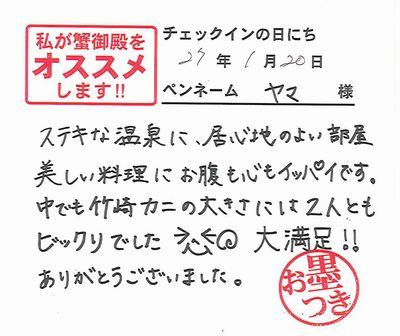 私が蟹御殿を
オススメ
します!!
チェックインの日にち
27年1月20日
ペンネーム ヤマ 様
ステキな温泉に、居心地のよい部屋
美しい料理にお腹も心もイッパイです。
中でも竹崎カニの大きさには2人とも
ビックリでした 大満足!!
ありがとうございました。
お墨つき